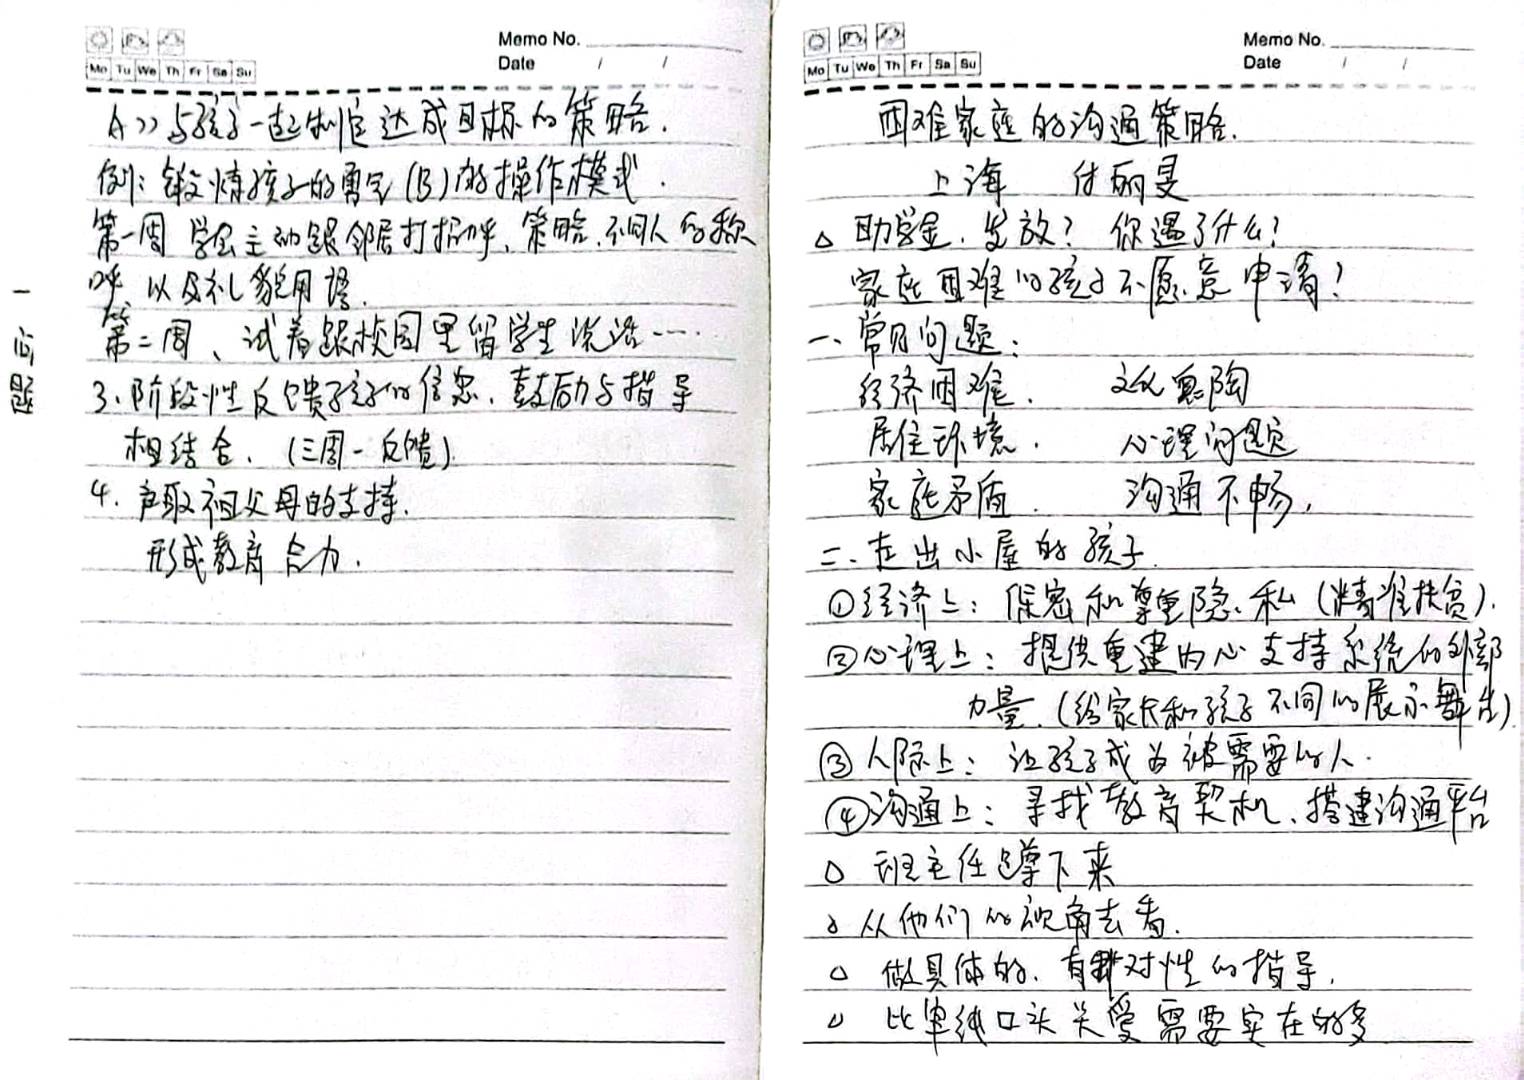 Memo No.
Date / /
Mo Tu We Th Fr Sa Su
A>> 与孩子一起制定达成目标的策略.
例：锻炼孩子的勇气(B)的操作模式.
第一周 学会主动跟邻居打招呼、策略.不同人的称
呼、以及礼貌用语.
第二周、试着跟校园里留学生说话……
3.阶段性反馈孩子的信息、鼓励与指导
相结合.(三周一反馈).
4.争取祖父母的支持.
形成教育合力.
一
问
题
Memo No.
Date / /
Mo Tu We Th Fr Sa Su
困难家庭的沟通策略.
上海 付丽旻
△ 助学金.发放? 你遇了什么?
家庭困难的孩子不愿意申请?
一、常见问题：
经济困难. 文化熏陶
居住环境. 心理问题
家庭矛盾. 沟通不畅.
二、走出小屋的孩子.
①经济上：保密和尊重隐私(精准扶贫).
②心理上：提供重建内心支持系统的外部
力量.(给家长和孩子不同的展示舞台).
③人际上：让孩子成为被需要的人.
④沟通上：寻找教育契机、搭建沟通平台
△ 班主任蹲下来
△ 从他们的视角去看.
△ 做具体的、有针对性的指导.
△ 比单纯口头关爱需要实在的多